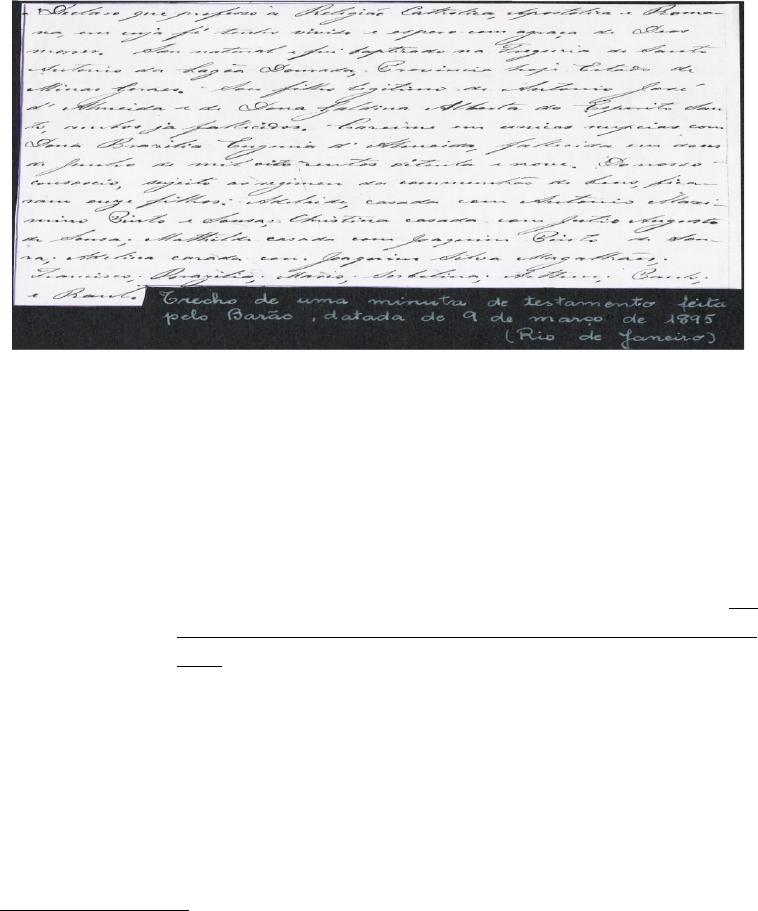 Declaro que professo a Religião Catholica, Apostolica e Roma-
na, em cuja fé tenho vivido e espero com a graça de Deos
morrer. Sou natural e fui baptisado na Freguezia de Santo
Antonio da Lagôa Dourada, Provincia hoje Estado de
Minas Geraes. Sou filho legitimo de Antonio José
d'Almeida e de Dona Galdina Alberta do Espirito San-
to, ambos ja fallecidos. Casei-me em unicas nupcias com
Dona Brazilia Eugenia d'Almeida, fallecida em
de Junho de mil oito centos oitenta e nove. Do nosso
consorcio, sujeito ao regimen da communhão de bens, fica-
ram onze filhos: Adelaide, casada com Antonio Maxi-
mino Pinto e Sousa; Christina casada com Julio Augusto
de Sousa; Mathilde casada com Joaquim Pinto de Sou-
sa; Adelina casada com Joaquim Silva Magalhães;
Francisco, Brazilia, Mario, Arthur,
e Raul.
Trecho de uma minuta de testamento feita
pelo Barão, datada de 9 de março de 1895
(Rio de Janeiro)